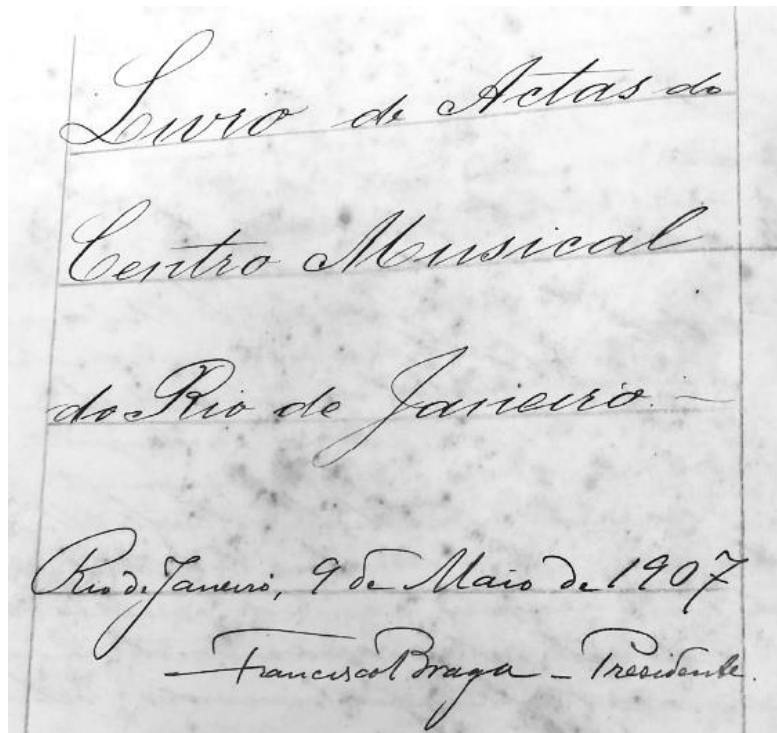 Livro de Actas do
Centro Musical
do Rio de Janeiro. —
Rio de Janeiro, 9 de Maio de 1907
Francisco Braga - Presidente.